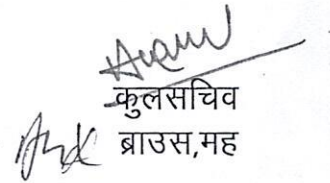 कुलसचिव
ब्राउस,मह